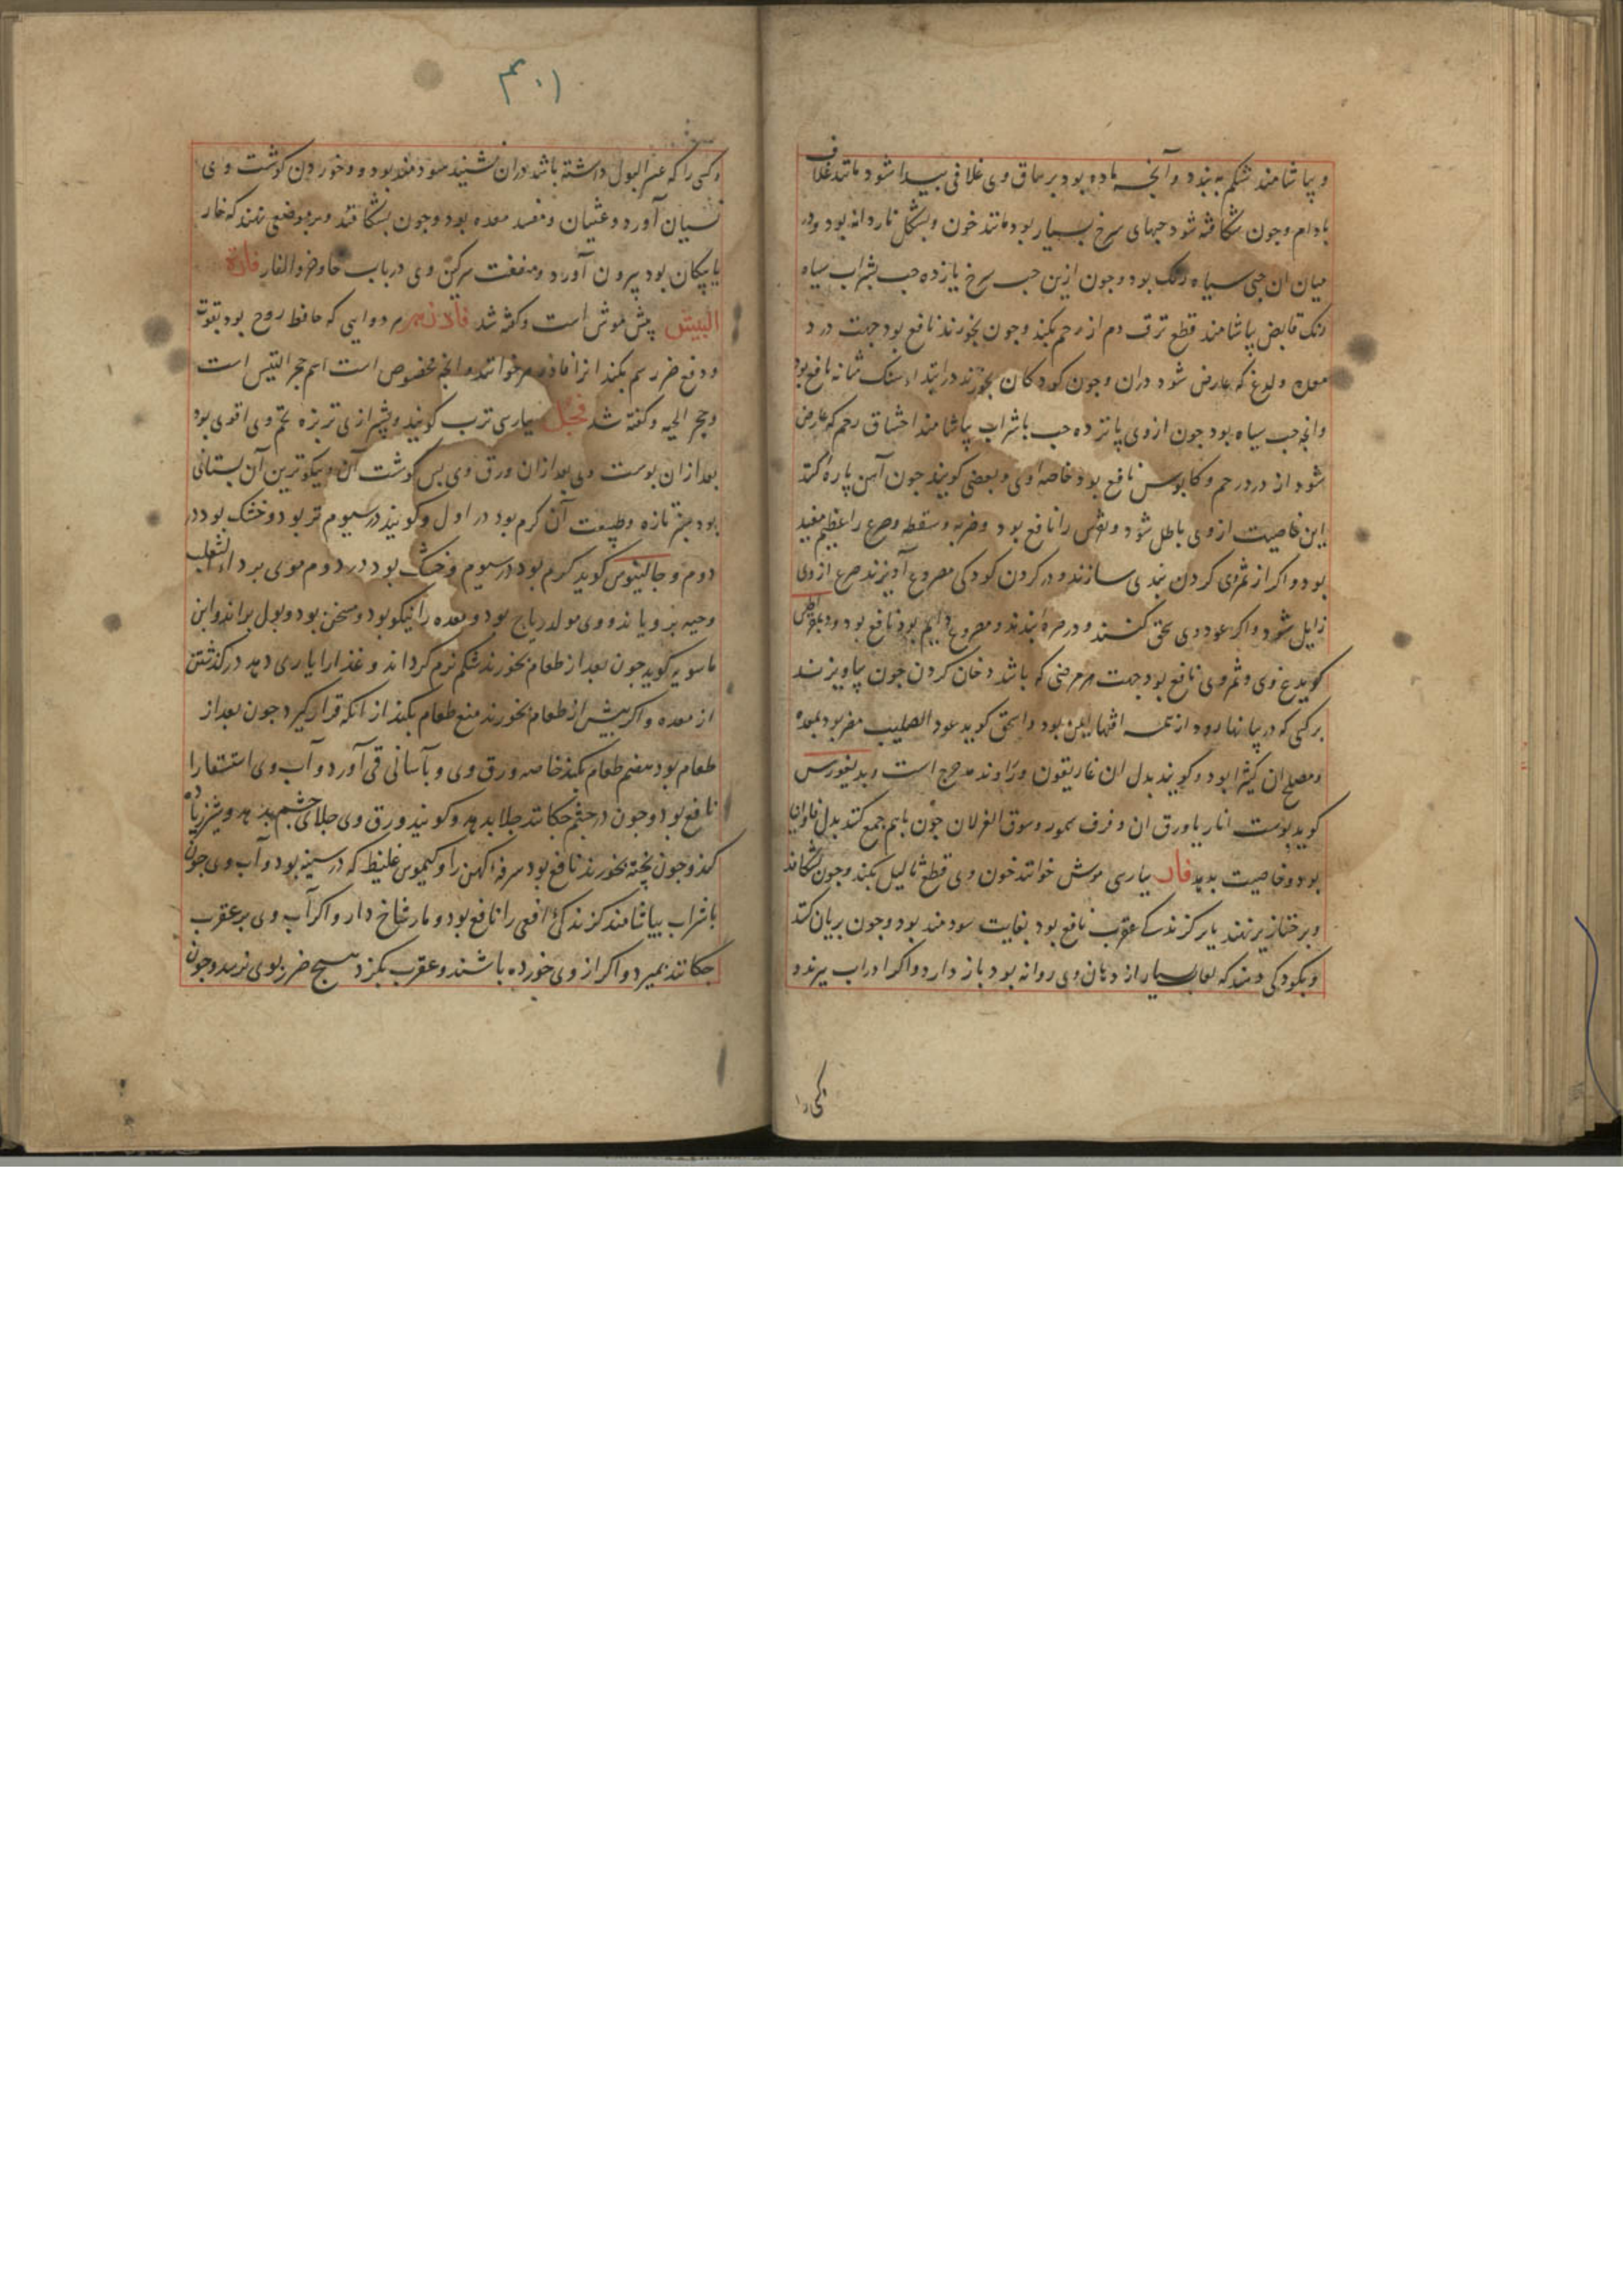 و بیاشامند شکم به بندد و آنچه ماده بود بر ساق وی غلافی پیدا شود مانند غلاف
بادام و چون شکافته شود حبهای سرخ بسیار بود مانند خون و بشکل ناردانه بود و در
میان ان حبی سیاه رنک بود و چون ازین حب سرخ یازده حب بشراب سیاه
رنک قابض بیاشامند قطع نزف دم از رحم بکند و چون بخورند نافع بود جهت درد
معده و لدغ که عارض شود دران و چون کودکان بخورند در ابتداء سنک مثانه نافع بود
وانچه حب سیاه بود چون ازوی پانزده حب باشراب بیاشامند اختناق رحم که عارض
شود از درد رحم و کابوس نافع بود خاصه وی و بعضی کویند چون آهن پاره کند
این خاصیت ازوی باطل شود و نقرس را نافع بود و ضربه و سقطه و صرع را عظیم مفید
بود و اکر از ثمر وی کردن بندی سازند و در کردن کودکی مصروع آویزند صرع ازوی
زایل شود و اکر عود وی سحق کنند و در صره بندند و مصروع دایم بوید نافع بود و
کوید وی و ثمر وی نافع بود جهت هر مرضی که باشد دخان کردن چون بیاویزند
برکسی که در بیابانها رود از همه افتها ایمن بود و اسحق کوید عود الصلیب مضر بود بمعده
و مصلح ان کثیرا بود و کویند بدل ان غاریقون و زراوند مدحرج است و بدیغورس
کوید پوست انار یا ورق ان و فرف سمور و سوق الغزلان چون باهم جمع کنند بدل فاوانیا
بود و خاصیت بدهد فار بپارسی موش خوانند خون وی قطع ثالیل بکند و چون بشکافند
و بر خنازیر نهند یا بر کزندکی عقرب نافع بود بغایت سودمند بود و چون بریان کنند
و بکودکی دهند که لعاب بسیار از دهان وی روانه بود باز دارد و اکر ادر اب پزند و
کسی را
۴۰۱
و کسی را که عسر البول داشته باشد دران نشیند سودمند بود و خوردن کوشت وی
نسیان آورد و غثیان و مفسد معده بود و چون بشکافند و بر موضعی نهند که خار
یا پیکان بود بیرون آورد و منفعت سرکین وی در باب خا و خرو الفار فارة
البیش بیش موش است و کفته شد فادزهر هر دوایی که حافظ روح بود بقوت
و دفع ضرر سم بکند انرا فادزهر خوانند و انچه مخصوص است اسم حجر التیس است
و حجر الحیه و کفته شد فجل بپارسی ترب کویند و بشیرازی تربزه تخم وی اقوی بود
بعد ازان پوست وی بعد ازان ورق وی پس کوشت آن و نیکوترین آن بستانی
بود تازه و طبیعت آن کرم بود در اول و کویند در سیوم تر بود و خشک بود در
دوم و جالینوس کوید کرم بود در سیوم و خشک بود در دوم موی بر داء الثعلب
و حیه برویاند و وی مولد ریاح بود و معده را نیکو بود و مسخن بود و بول براند و ابن
ماسویه کوید چون بعد از طعام بخورند شکم نرم کرداند و غذا را یاری دهد در کذشتن
از معده و اکر پیش از طعام بخورند منع طعام بکند از آنکه قرار کیرد چون بعد از
طعام بود هضم طعام بکند خاصه ورق وی و بآسانی قی آورد و آب وی استسقا را
نافع بود و چون در چشم چکانند جلا بدهد و کویند ورق وی جلای چشم بدهد و شیر زیاده
کند و چون پخته بخورند نافع بود سرفه کهن را و کیموس غلیظ که در سینه بود و آب وی چون
باشراب بیاشامند کزندکی افعی را نافع بود و مار شاخ دار و اکر آب وی بر عقرب
چکانند بمیرد و اکر از وی خورده باشند و عقرب بکزد هیچ ضرر بوی نرسد و چون